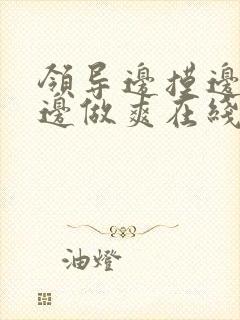 领导邊摸邊
邊做爽在綫
油燈